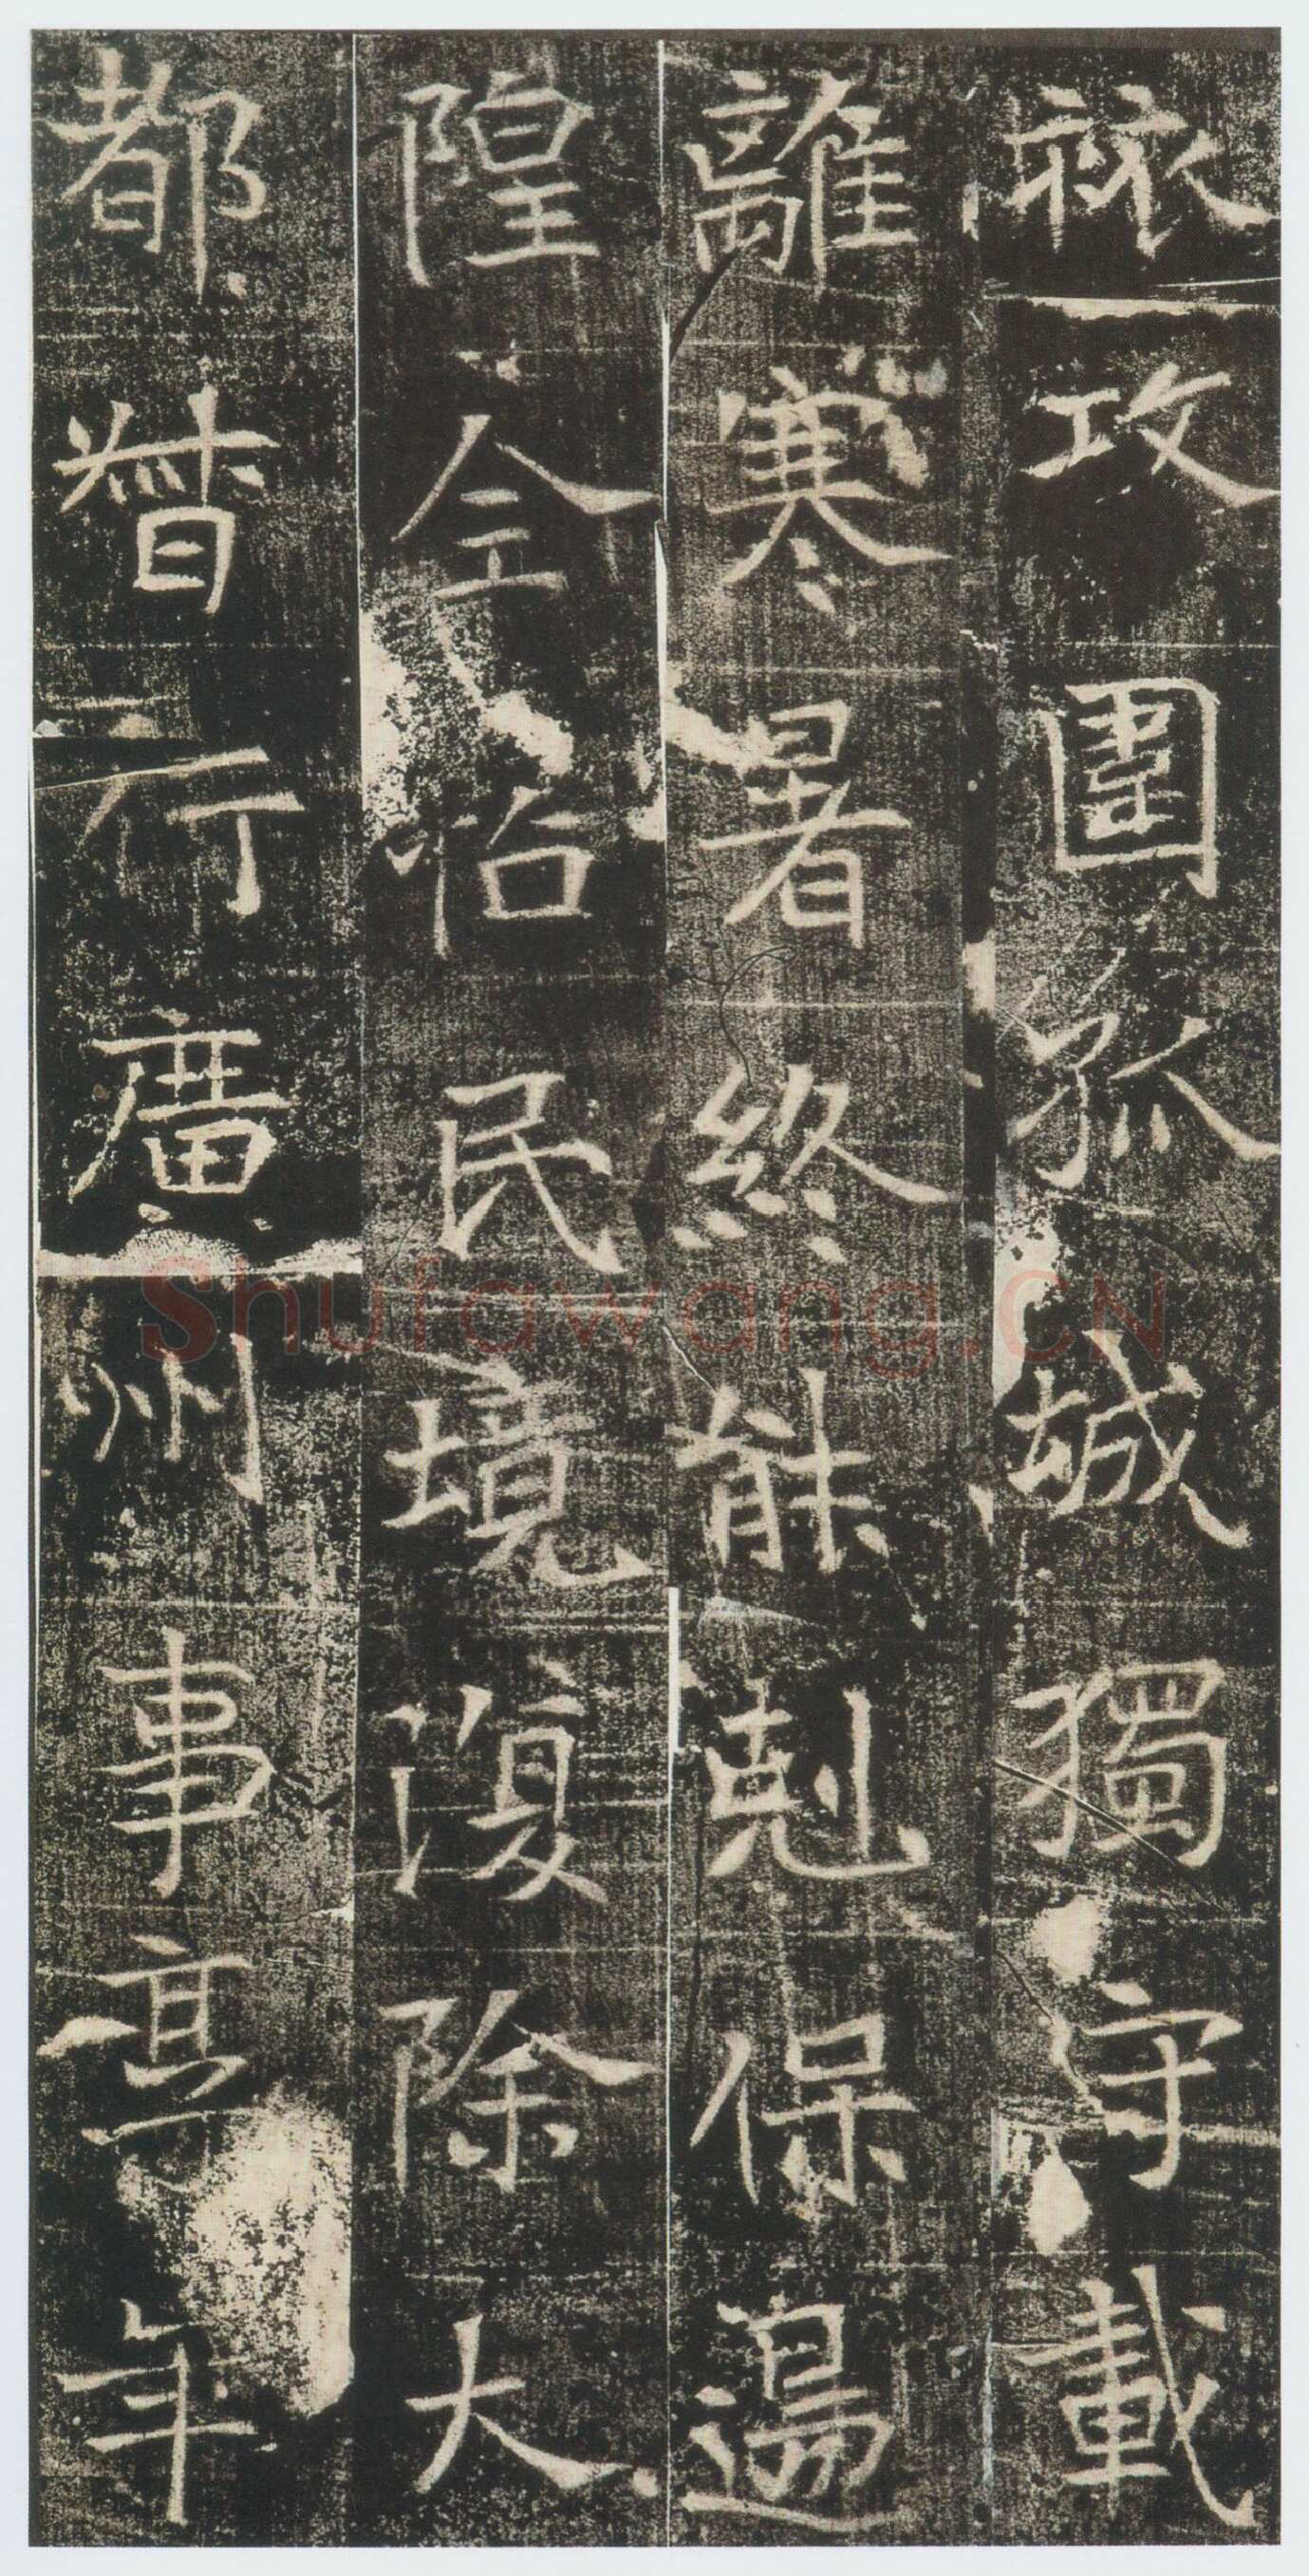 旅攻圍孤城獨守載
離寒暑終能剋保邊
隍全怡民境復除大
都督行廣州事享年
Shufawang.CN